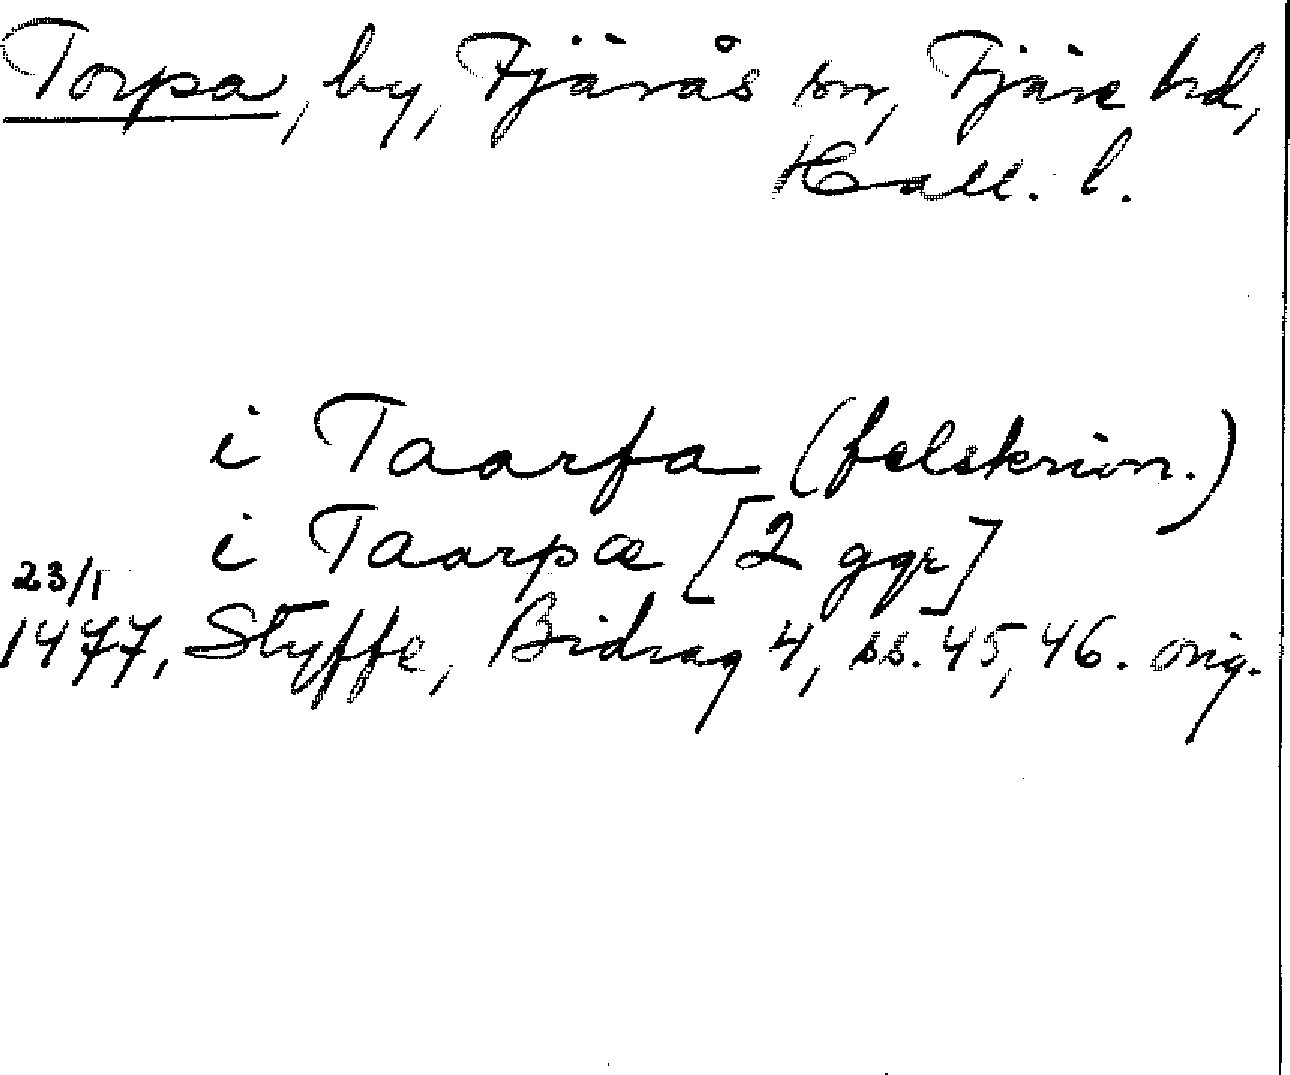 Torpa, by, Fjärås sn, Fjäre hd,
Hall. l.
i Taarfa (felskrivn.)
i Taarpæ [2 ggr]
23/1
1477, Styffe, Bidrag 4, ss. 45, 46. orig.